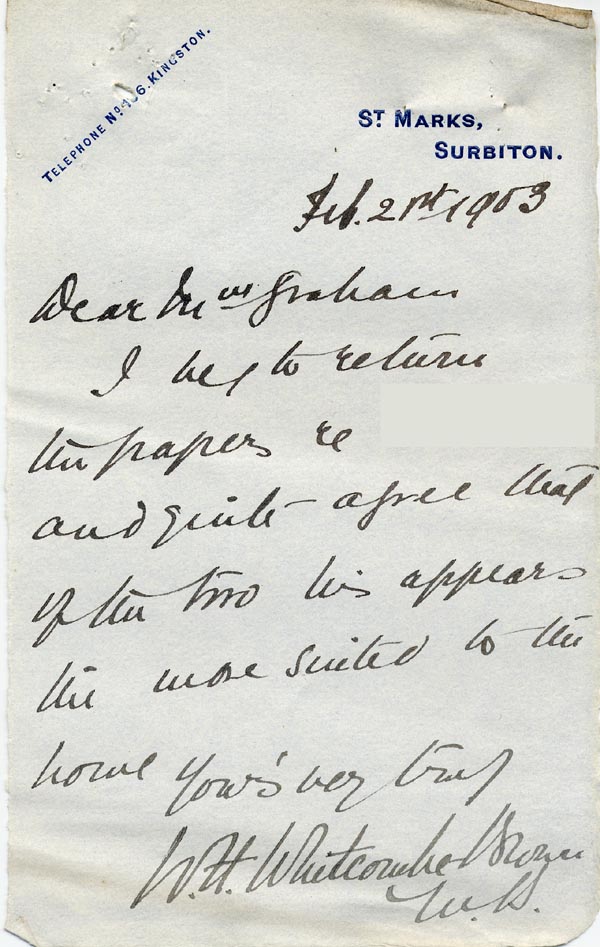 TELEPHONE No 106. KINGSTON.
ST MARKS,
SURBITON.
Feb. 21st 1903
Dear Mrs Graham
I beg to return
the papers re
and quite agree that
of the two his appears
the more suited to the
home Your's very truly
W.H. Whitcombe Brown
M.B.